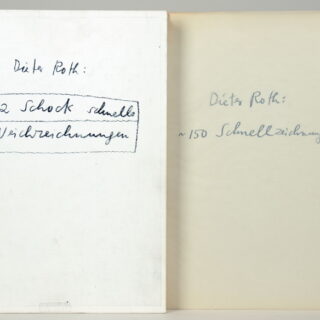 Dieter Roth:
2 Schock schnelle
Weichzeichnungen
Dieter Roth:
~150 Schnellzeichnung